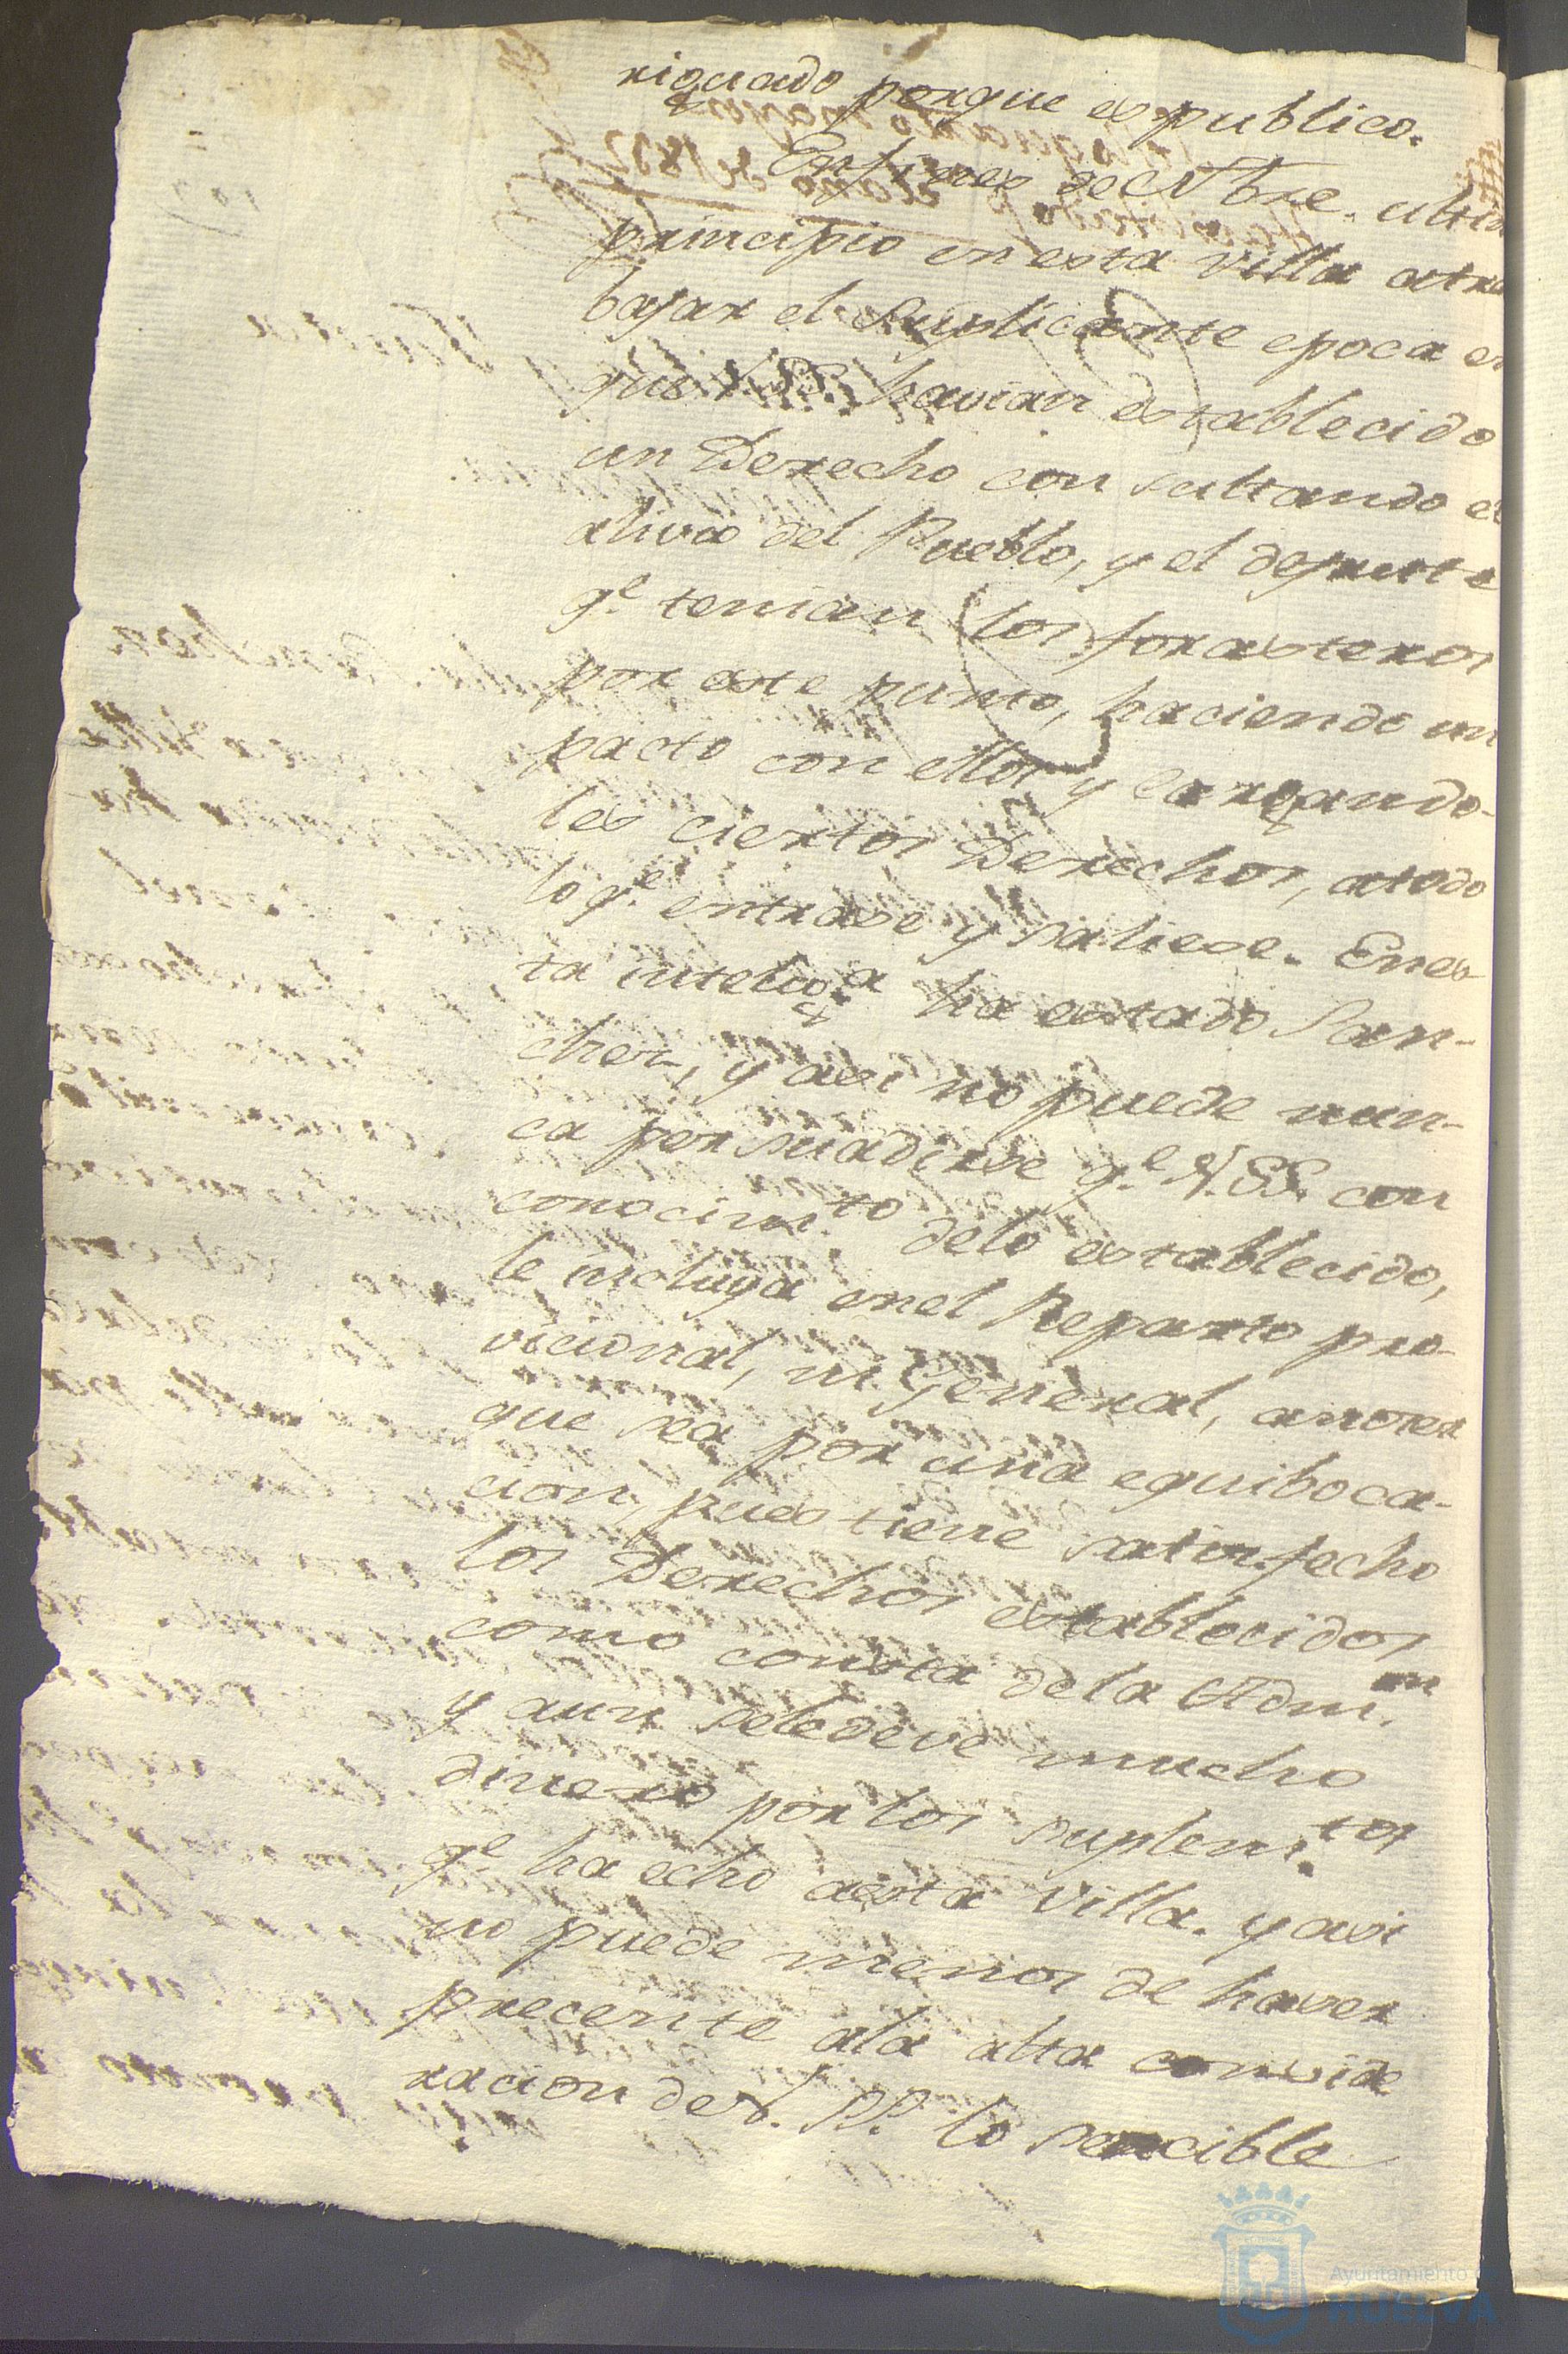 riguado porque es publico.
En fines de Nbre. ultim
principio en esta villa atra
bajar el Suplicante epoca en
que V.SS. havian establecido
un Derecho consultando el
alivio del Pueblo, y el defrute
q.e tenian los forasteros
por este punto, haciendo un
pacto con ellos y cargando-
les ciertos Derechos, atodo
lo q.e entrase y saliese. Enes
ta intelig.a ha estado San-
chez, y asi no puede nun-
ca persuadirse q.e V.SS. con
conocim.to delo establecido,
le incluya enel Reparto pro-
vicional, ni General, anoser
que sea por una equiboca-
cion, pues tiene satisfecho
los Derechos establecidos
como consta dela Adm.on
y aun seledeve mucho
dinero por los suplem.tos
q.e ha echo aesta Villa. y asi
no puede menos de haver
precente ala alta conside
racion de V. SS. lo sencible
Ayuntamiento de
HUELVA